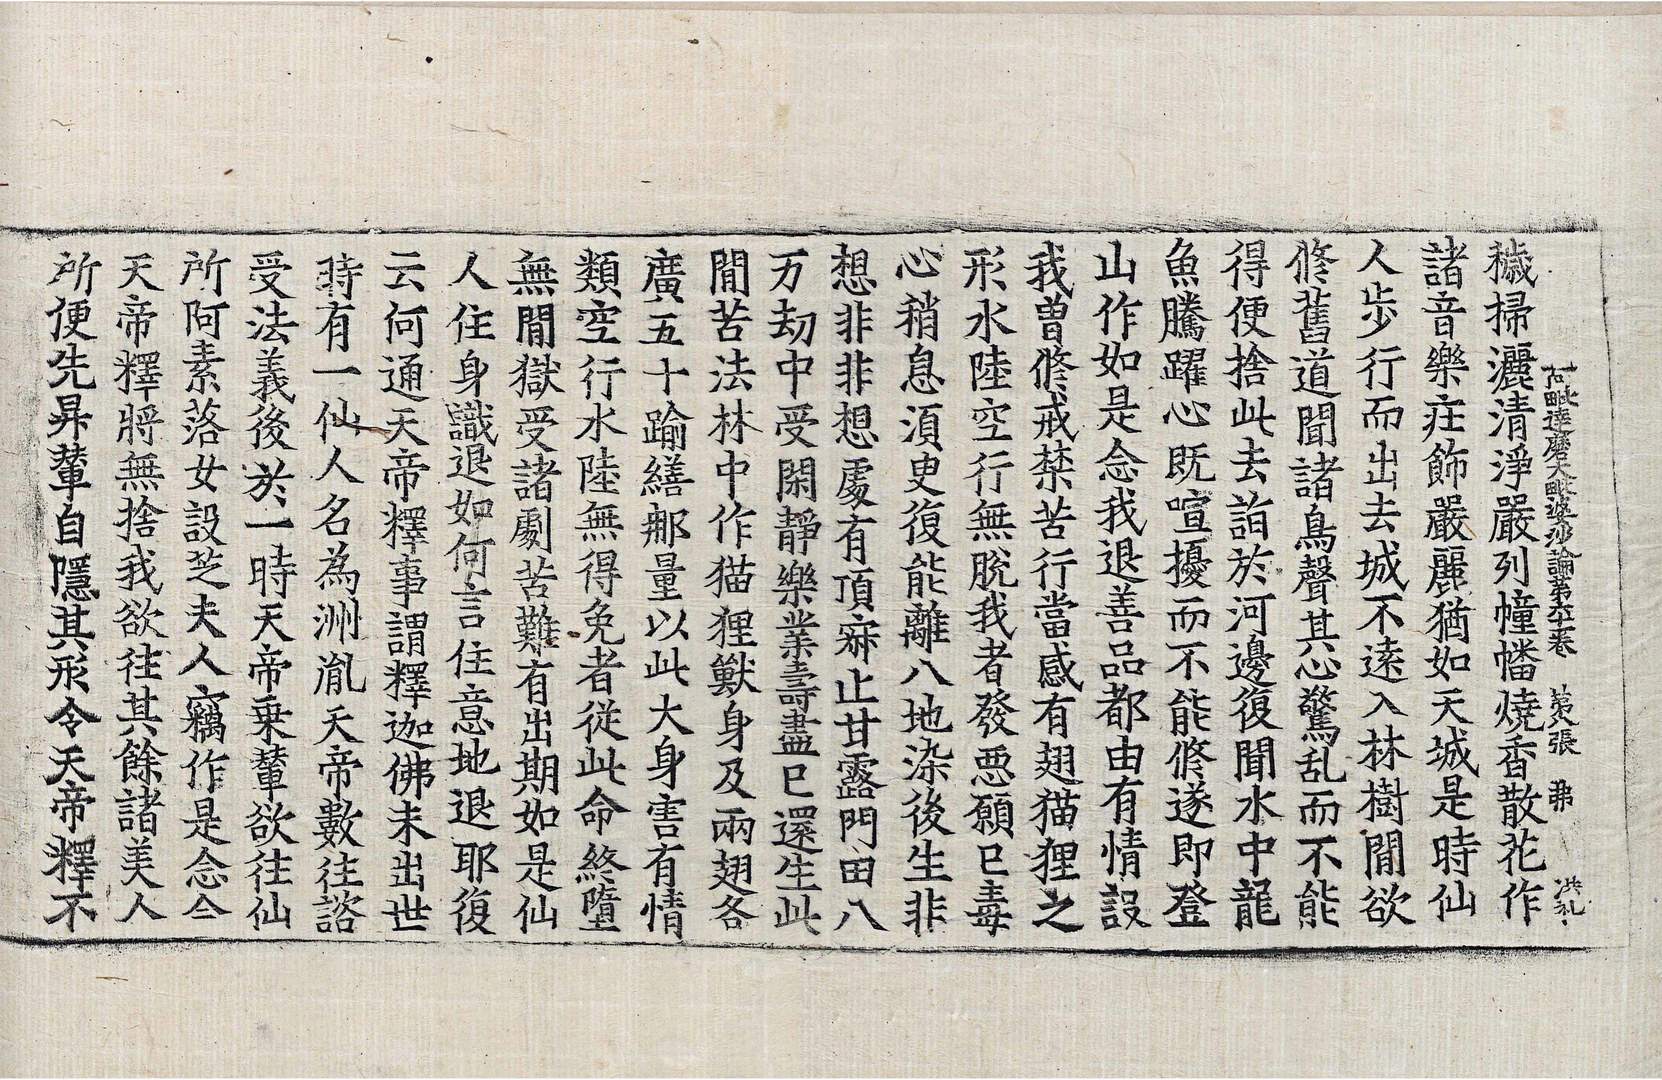 阿毗達磨大毗婆沙論第六十一卷 第八張 弗 洪礼
穢掃灑清淨嚴列幢幡燒香散花作
諸音樂莊飾嚴麗猶如天城是時仙
人步行而出去城不遠入林樹閒欲
修舊道聞諸鳥聲其心驚乱而不能
得便捨此去詣於河邊復聞水中龍
魚騰躍心既喧擾而不能修遂即登
山作如是念我退善品都由有情設
我曾修戒禁苦行當感有翅猫狸之
形水陸空行無脫我者發惡願已毒
心稍息須臾復能離八地染後生非
想非非想處有頂寂止甘露門田八
万劫中受閑靜樂業壽盡已還生此
閒苦法林中作猫狸獸身及兩翅各
廣五十踰繕那量以此大身害有情
類空行水陸無得免者從此命終墮
無閒獄受諸劇苦難有出期如是仙
人住身識退如何言住意地退耶復
云何通天帝釋事謂釋迦佛未出世
時有一仙人名為洲胤天帝數往諮
受法義後於一時天帝乘輦欲往仙
所阿素落女設芝夫人竊作是念今
天帝釋將無捨我欲往其餘諸美人
所便先昇輦自隱其形令天帝釋不